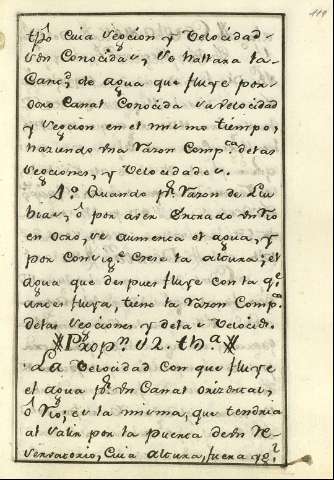 119
tpõ cuia seccion y Velocidad
sea Conocida, se hallara la
Canđ de agua que fluye por
otro Canal Conocida su Velocidad
y seccion en el mismo tiempo,
hazundo Vna Razon Compca delas
secciones, y Velocidades.
4º Quando pr Razon de llu
bias, ô por aver entrado Vn Rio
en otro, se aumenta el agua, y
por Consige crese la altura; el
agua que despues fluye con la qe
antes fluya, tiene la Razon Compca
delas secciones y delas Velocids.
Propn 52. tha
La Velocidad con que fluye
el agua pr Vn Canal orizontal,
ô Rio; es la misma, que tendria
al salir por la puerta de Vn Re
servatorio, Cuia altura, fuera